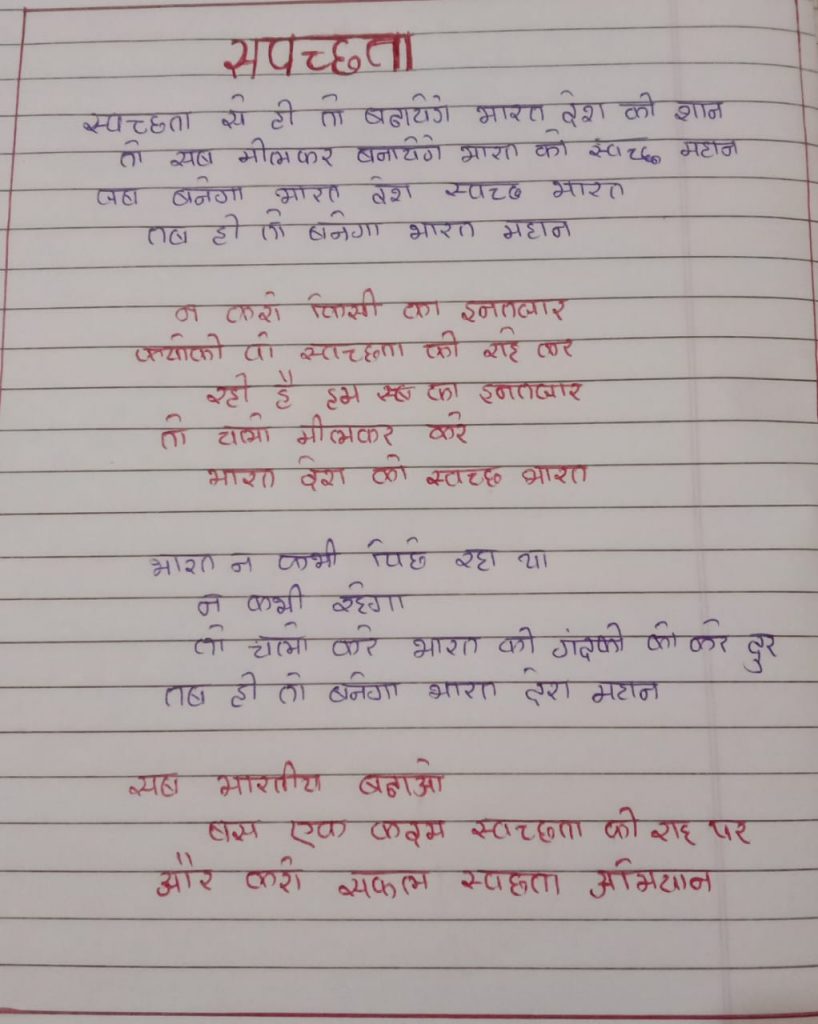 स्पच्छता
स्वच्छता से ही तो बढायेगे भारत देश की शान
तो सब मीलकर बनायेंगे भारत को स्वच्छ महान
जब बनेगा भारत देश स्वच्छ भारत
तब ही तो बनेगा भारत महान
न करो किसी का इनतजार
क्योकी वो स्वच्छता की राहे कर
रही है हम सब का इनतजार
तो चलो मीलकर करे
भारत देश को स्वच्छ भारत
भारत न कभी पिछे रहा था
न कभी रहेगा
तो चलो करे भारत की गंदकी को करे दुर
तब ही तो बनेगा भारत देश महान
सब भारतीय बढाओ
बस एक कदम स्वच्छता की राह पर
और करो सफल स्वछता अभियान